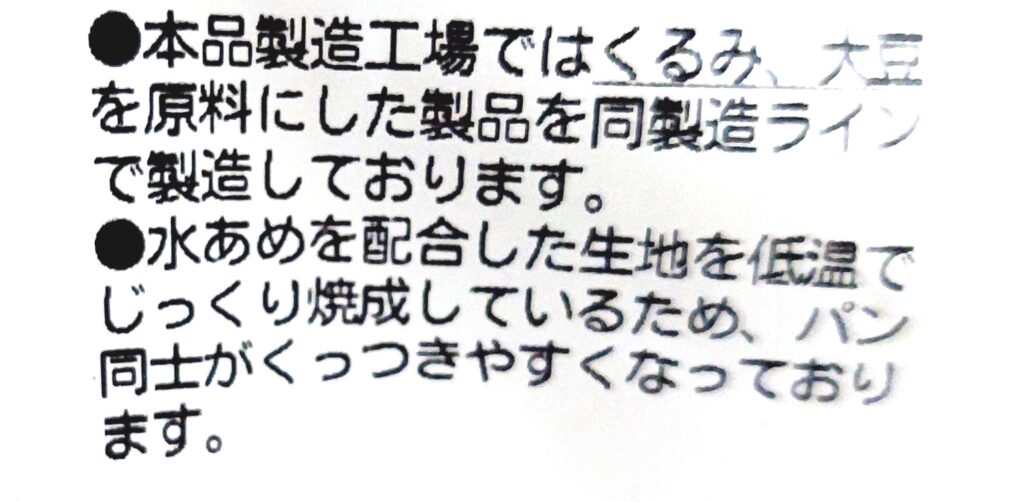 ●本品製造工場ではくるみ、大豆
を原料にした製品を同製造ライン
で製造しております。
●水あめを配合した生地を低温で
じっくり焼成しているため、パン
同士がくっつきやすくなっており
ます。